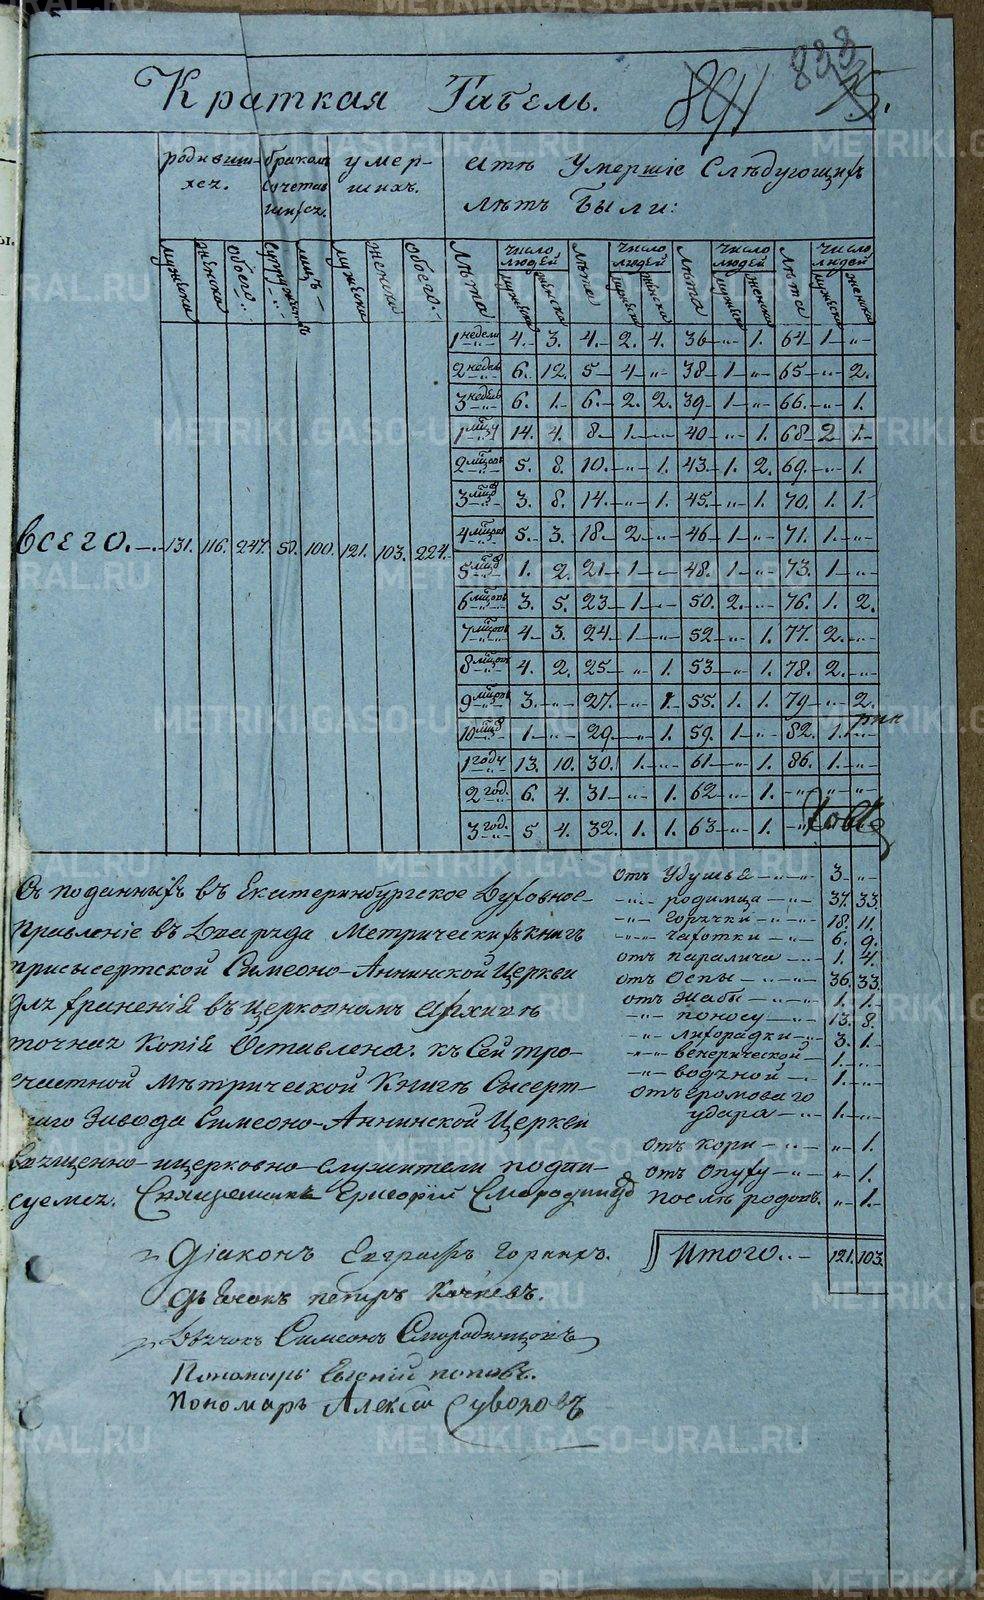 Краткая Табель.
891
838
родивш-
хся.
бракомъ
сочетав
шихся.
умер-
шихъ.
Лѣтъ Умершіе Слѣдующихъ
Лѣтъ Были:
мужеска женска обоего супружествъ лицъ мужеска женска обоего
Лѣта число людей Лѣта число людей Лѣта число людей Лѣта число людей
мужеска женска мужеска женска мужеска женска мужеска женска
1 недели 4. 3. 4. 2. 4. 36 -„- 1. 64 1 -„-
2 недель 6. 12. 5 4 -„- 38 1 -„- 65 -„- 2.
3 недель 6. 1. 6. 2. 2. 39 1 -„- 66 -„- 1.
1 мѣсяцу 14. 4. 8 1 -„- 40 -„- 1. 68 2 1.
2 мѣсяцовъ 5. 8. 10. -„- 1. 43 1. 2. 69. -„- 1.
3 мѣсяцовъ 3. 8. 14. -„- 1. 45 -„- 1. 70. 1. 1.
4 мѣсяцовъ 5. 3. 18. 2 -„- 46 1 -„- 71. 1. -„-
Всего. 131. 116. 247. 50. 100. 121. 103. 224.
5 мѣсяцовъ 1. 2. 21 1 -„- 48. 1 -„- 73. 1 -„-
6 мѣсяцовъ 3. 5. 23 1 -„- 50. 2. -„- 76. 1. 2.
7 мѣсяцовъ 4 3. 24 1 -„- 52 -„- 1. 77. 2. -„-
8 мѣсяцовъ 4. 2. 25 -„- 1. 53 -„- 1. 78. 2. -„-
9 мѣсяцовъ 3. -„- 27. -„- 1 55. 1. 1. 79 -„- 2.
10 мѣсяцовъ 1. -„- 29. -„- 1. 59. 1 -„- 82. 1. -„-
1 году 13. 10. 30. 1. -„- 61 -„- 1. 86. 1. -„-
2 год. 6. 4. 31 -„- 1. 62 -„- 1. -„- -„- -„-
3 год. 5 4. 32. 1. 1. 63 -„- 1. -„-
Съ поданныхъ въ Екатеринбургское Духовное-
Правленіе въ Метрическихъ книгъ
присысертской Симеоно-Аннинской Церкви
для храненія въ церковномъ Архивѣ
точная Копія Оставлена. къ Сей тро-
честной Мѣтрической Книгѣ Сысерт-
скаго Завода Симеоно-Аннинской Церкви
Священно-ицерковно-служители подпи-
суемся. Священникъ Григорій Смородинцевъ
Діаконъ Евграфъ Горныхъ.
Дьячокъ петръ
Дьячокъ Симеонъ Смородинцовъ
Пономарь Евгеній поповъ.
Пономарь Алексѣй Суворовъ
отъ Удушья 3. -„-
-„- родимца 37. 33.
-„- Горячки 18. 11.
-„- Чахотки 6. 9.
отъ паралича 1. 4.
отъ Оспы 36. 33.
отъ Жабы 1. 1.
-„- поносу 13. 8.
-„- лихорадки 3. 1.
-„- венерической 1. -„-
-„- водяной 1. -„-
отъ громоваго
удара 1. -„-
отъ кори -„- 1.
отъ Опуху -„- 1.
послѣ родовъ. -„- 1.
Итого. 121. 103.
METRIKI.GASO-URAL.RU